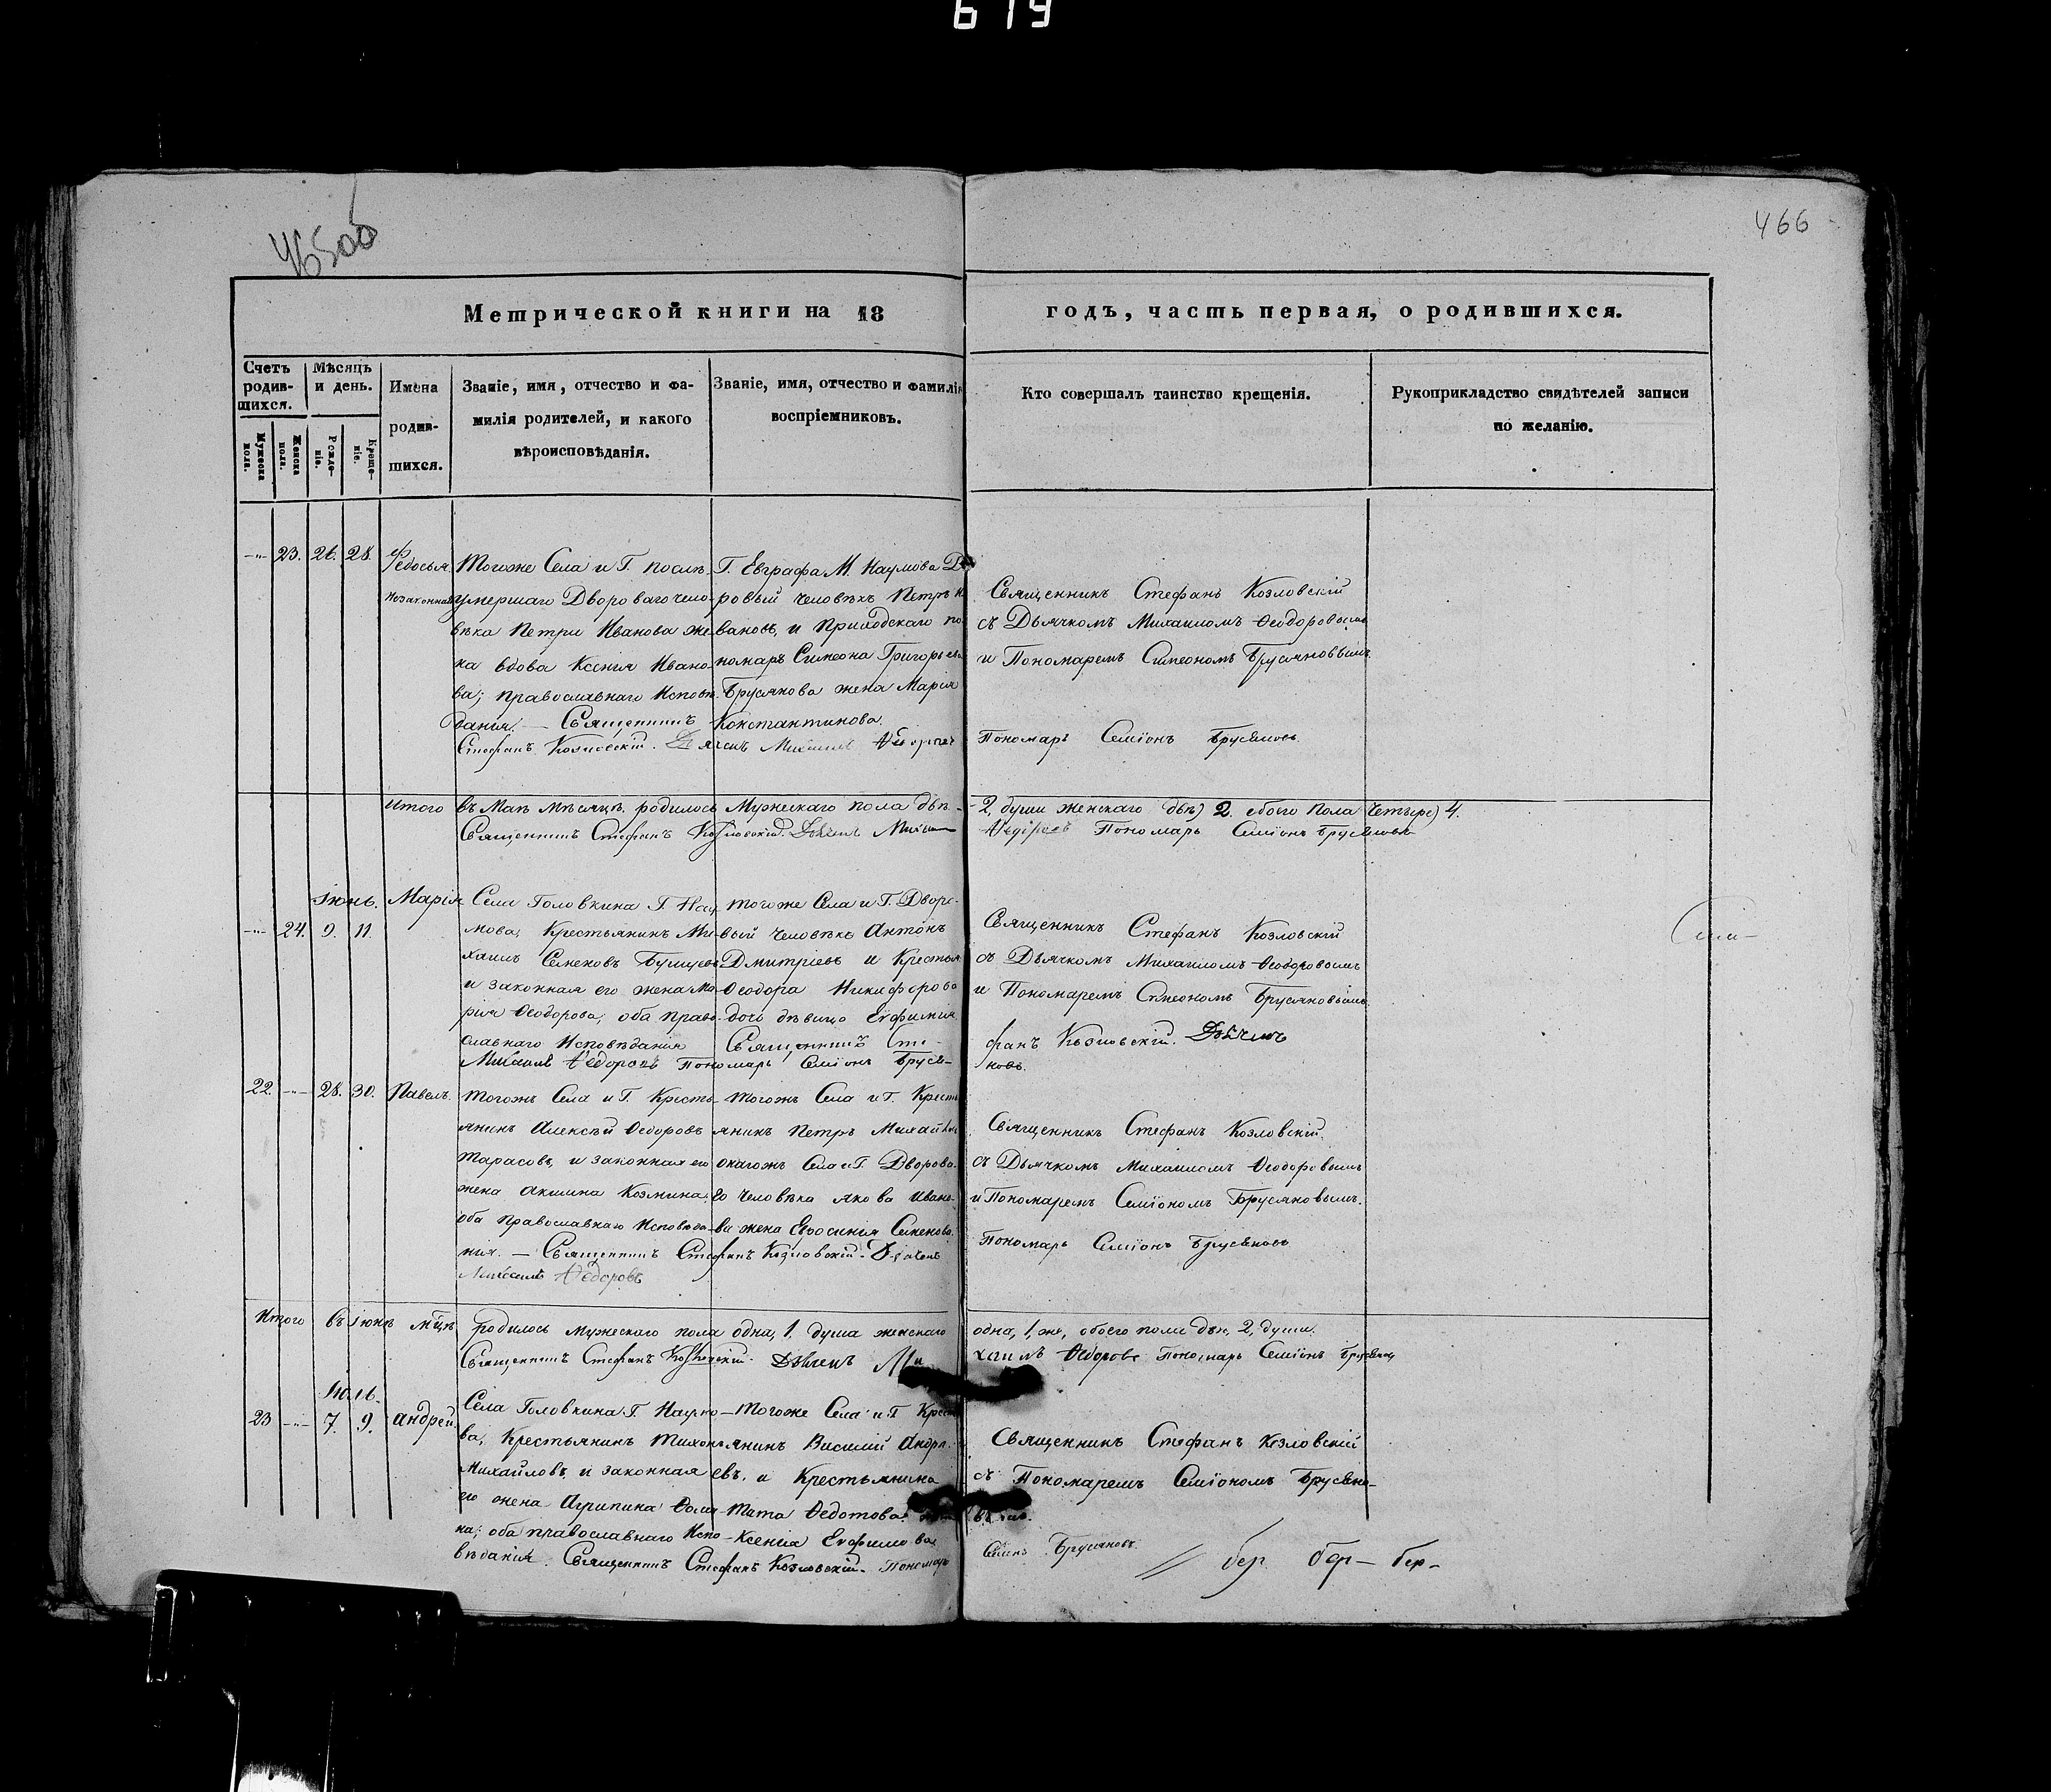 619
466
Метрической книги на 18 годъ, часть первая, о родившихся.
Счетъ родив-шихся.
Мѣсяцъ и день.
Мужеска пола.
Женска пола.
Рожде-ніе.
Креще-ніе.
Имена родив-шихся.
Званіе, имя, отчество и фа-
милія родителей, и какого
вѣроисповѣданія.
Званіе, имя, отчество и фамилія
воспріемниковъ.
Кто совершалъ таинство крещенія.
Рукоприкладство свидѣтелей записи
по желанію.
-"- 23. 26. 28. Федосья
Незаконная
Тогоже Села и Г. послѣ
умершаго Двороваго чело-
вѣка Петра Иванова же-
на вдова Ксенія Ивано-
ва; православнаго Исповѣ-
данія. — Священникъ
Г. Евграфа М. Наумова Дво
ровый человѣкъ Петръ И
вановъ, и Приходскаго по-
номаря Симеона Григорьева
Брусянова жена Марія
Константинова.
Стефанъ Козловскій. Дьячекъ Михаилъ Ѳедоровъ
Священникъ Стефанъ Козловскій
съ Дьячкомъ Михаиломъ Ѳеодоровымъ
и Пономаремъ Симеономъ Брусяновымъ
Пономарь Семіонъ Брусяновъ.
Итого въ Маѣ мѣсяцѣ родилось Мужескаго пола двѣ - 2, души женскаго двѣ) 2. обоего Пола четыре) 4.
Священникъ Стефанъ Козловскій. Дьячекъ Михаилъ Ѳедоровъ Пономарь Семіонъ Брусяновъ
Іюнь.
-"- 24. 9. 11. Марія
Села Головкина Г. Нау
мова, Крестьянинъ Ми-
хаилъ Семеновъ
и законная его жена Ма-
рія Ѳеодорова, оба право-
славнаго Исповѣданія
Тогоже Села и Г. Дворо-
вый человѣкъ Антонъ
Дмитріевъ и Крестья
Ѳеодора Никифорова
дочь дѣвица Евфимія.
Священникъ Сте-
фанъ Козловскій. Дьячекъ
Михаилъ Ѳедоровъ Пономарь Семіонъ Бруся-
новъ.
Священникъ Стефанъ Козловскій
съ Дьячкомъ Михаиломъ Ѳеодоровымъ
и Пономаремъ Симеономъ Брусяновымъ.
22. -"- 28. 30. Павелъ.
Тогожъ Села и Г. Кресть-
янинъ Алексѣй Ѳеодоровъ
Тарасовъ, и законная его
жена Акилина Козмина,
оба православнаго Исповѣда-
нія. — Священникъ Стефанъ Козловскій. Дьячекъ
Михаилъ Ѳедоровъ
Тогожъ Села и Г. Кресть
янинъ Петръ Михайлов
онагожъ Села и Г. Дворова-
го человѣка Якова Ивано-
ва жена Евросинія Семенова.
Священникъ Стефанъ Козловскій.
съ Дьячкомъ Михаиломъ Ѳеодоровымъ
и Пономаремъ Семіономъ Брусяновымъ.
Пономарь Семіонъ Брусяновъ
Итого въ Іюнѣ мцѣ родилось мужескаго пола одна, 1. душа женскаго одна, 1, же, обоего пола двѣ, 2, души.
Священникъ Стефанъ Козловскій. Дьячекъ Михаилъ Ѳедоровъ Пономарь Семіонъ Брусяновъ
Іюль.
23 -"- 7. 9. Андрей.
Села Головкина Г. Наумо-
ва, Крестьянинъ Тихонъ
Михайловъ, и законная
его жена Агрипина Ѳоми-
на; оба православнаго Испо-
вѣданія. Священникъ Стефанъ Козловскій. Пономарь
Тогоже Села и Г. Крест
янинъ Василій Андре-
евъ, и Крестьянина
Ѳедотова
Ксенія Евфимова
Священникъ Стефанъ Козловскій
съ Пономаремъ Семіономъ Брусяно-
вымъ.
Семіонъ Брусяновъ.